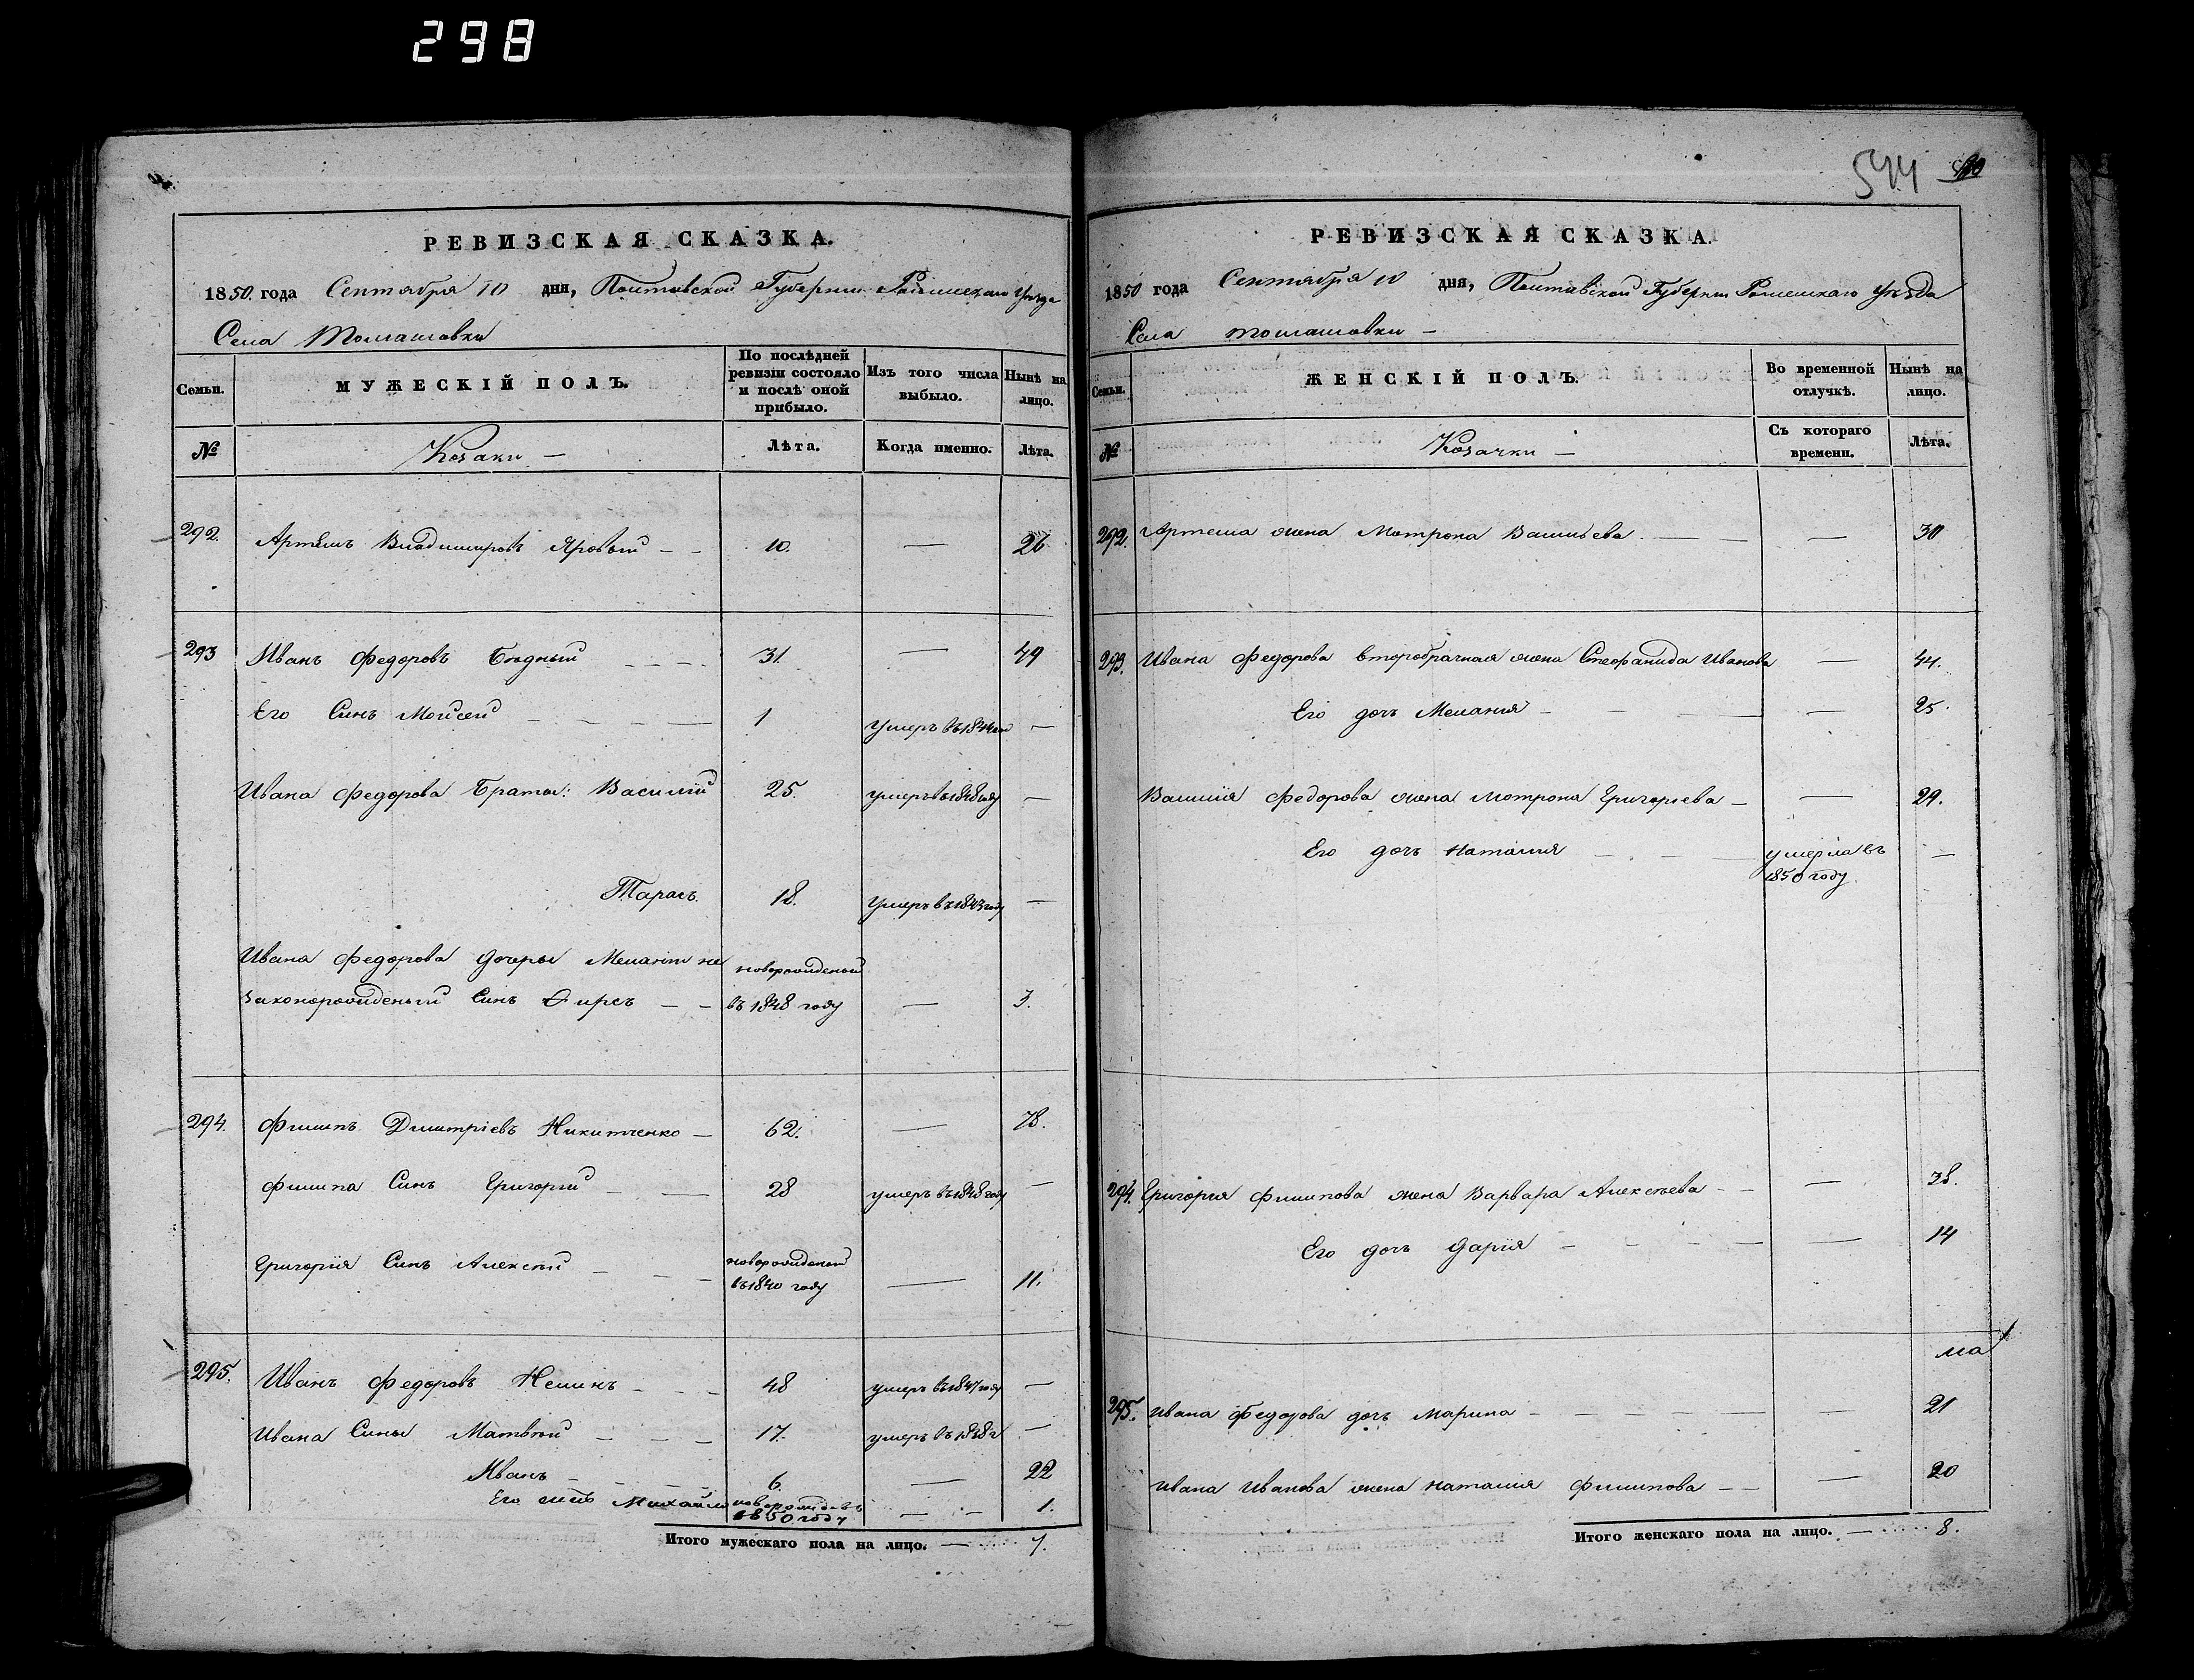 298
РЕВИЗСКАЯ СКАЗКА.
1850. года Сентября 10 дня, Полтавской Губерніи Роменскаго Уезда
Села Томашовки
Семьи.
МУЖЕСКІЙ ПОЛЪ.
По послѣдней ревизіи состояло и послѣ оной прибыло.
Изъ того числа выбыло.
Нынѣ на лицо.
№
Козаки —
Лѣта.
Когда именно.
Лѣта.
292. Артемъ Владимировъ Яровый — — 10. — 26
293 Иванъ Федоровъ Бѣдный 31. — 49
Его Синъ Мойсей — 1 умеръ въ 1844 год —
Ивана Федорова Браты: Василій 25. умеръ въ 1848 году —
Тарасъ. 18. умеръ въ 1843 году —
Ивана Федорова дочеры Меланіи не новорожденый
законорожденый Синъ Фирсъ — — въ 1848 году — 3.
294. Филипъ Дмитріевъ Никитченко — 62. — 78.
Филипа Синъ Григорій — — 28 умеръ въ 1848 году —
Григорія Синъ Алексѣй — — — новорожденый
въ 1840 году — 11.
295. Иванъ Федоровъ Немикъ - - - 48 умеръ въ 1847 году —
Ивана Сины Матвѣй — — — 17. умеръ въ 1848 г —
Иванъ — 6. — 22
Его синъ Михайло новорожденъ
1850 году — - 1.
Итого мужескаго пола на лицо. — 7.
544
РЕВИЗСКАЯ СКАЗКА.
1850 года Сентября 10 дня, Полтавской Губерніи Роменскаго уѣзда
Села Томашовки —
Семьи.
ЖЕНСКІЙ ПОЛЪ.
Во временной отлучкѣ.
Нынѣ на лицо.
№
Козачки —
Съ котораго времени.
Лѣта.
292. Артема жена Мотрона Васильева — — 30
293. Ивана Федорова второбрачная жена Стефанида Иванова — 44.
Его дочь Мелания — — — 25.
Василія Федорова жена Мотрона Григорьева — — 29.
Его дочь Наталия — умерла въ —
1850 году.
294. Григория Филипова жена Варвара Алексѣева — — 38.
Его дочь Дарія — — — 14
295. Ивана Федорова дочь Марина — — — 21
Ивана Иванова жена Наталия Филипова — — — 20
Итого женскаго пола на лицо. — 8.